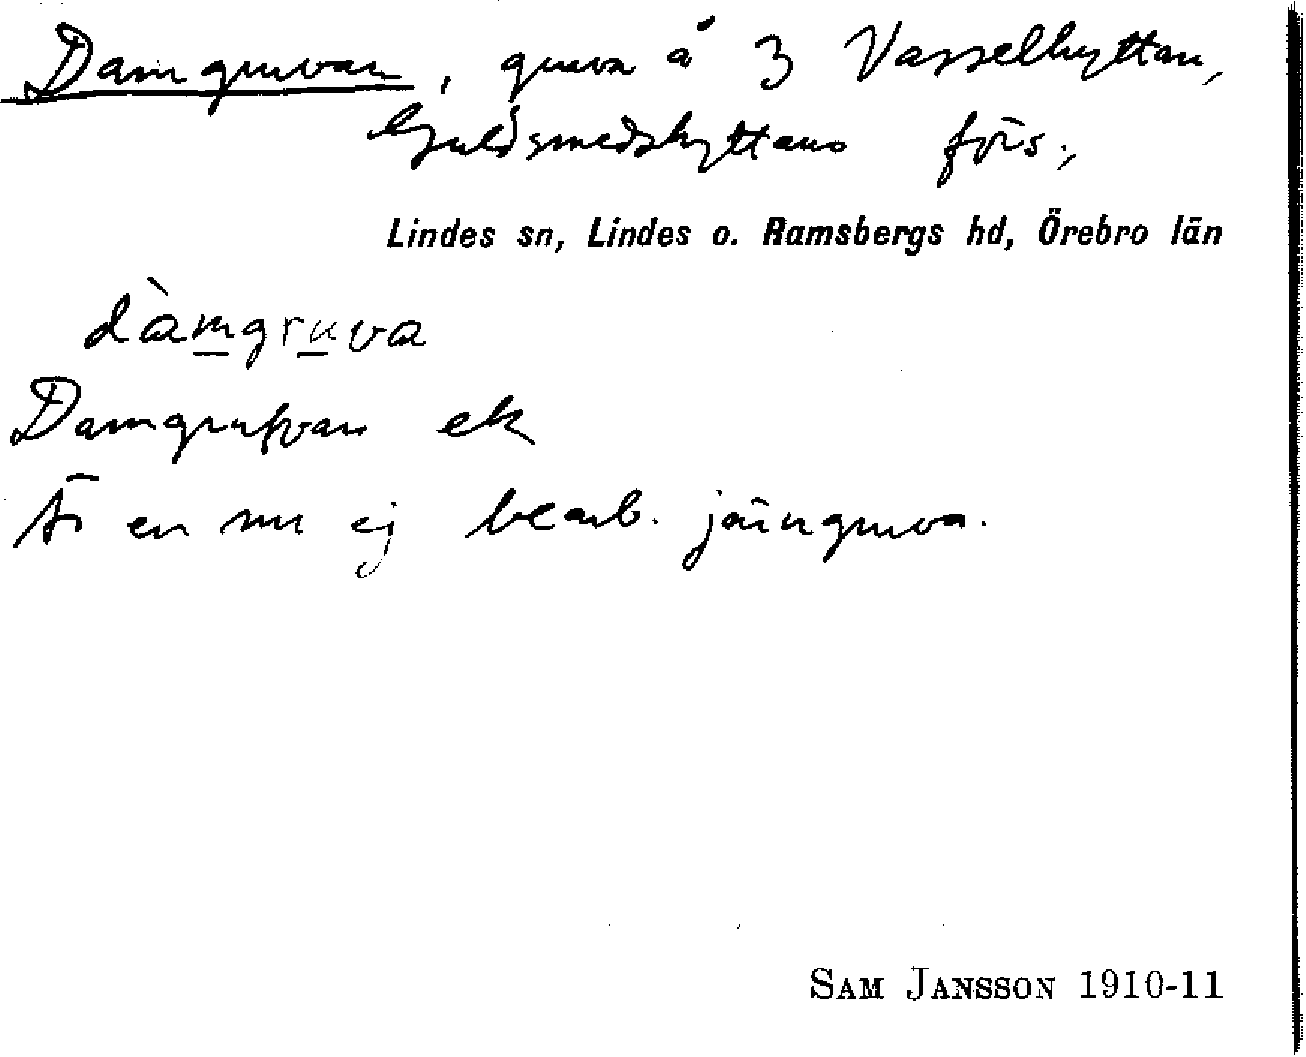 Damgruvan, gruva å 3 Vasselhyttan,
Guldsmedshyttans förs.,
Lindes sn, Lindes o. Ramsbergs hd, Örebro län
dàmgruva
Damgrufvan ek
Är en nu ej bearb. järngruva.
SAM JANSSON 1910-11